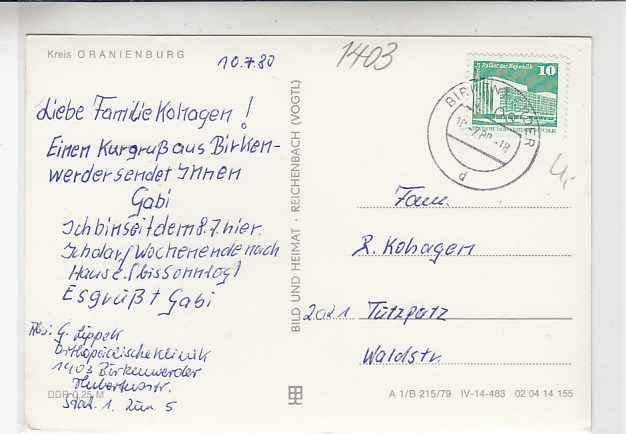 Kreis ORANIENBURG
10.7.80
1403
Liebe Familie Kohagen!
Einen Kurgruß aus Birken-
werder sendet Ihnen
Gabi
Ich bin seit dem 8.7. hier.
Ich darf Wochenende nach
Haus
(bis Sonntag)
Es grüßt Gabi
Abs: G. Lippek
Orthopädische Klinik
1403 Birkenwerder
Hubertusstr.
Stat. 1. Zim. 5
DDR 0,25 M
BILD UND HEIMAT · REICHENBACH (VOGTL)
Palast der Republik
10
BIRKENWERDER
Fam.
R. Kohagen
2021 Tützpatz
Waldstr.
A 1/B 215/79 IV-14-483 02 04 14 155